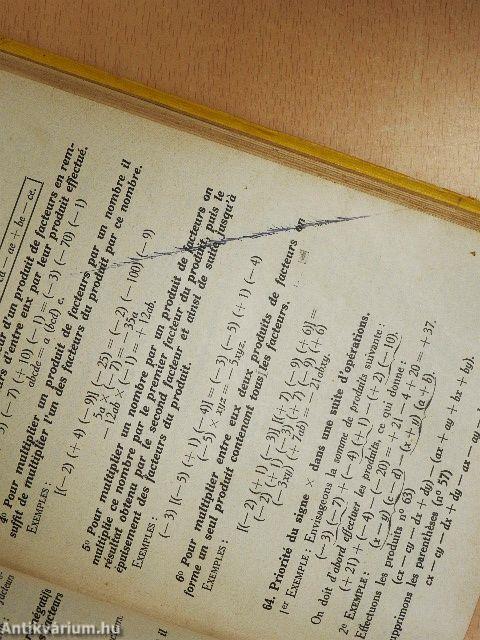 ad — ae + be — ce.
eur d'un produit de facteurs en rem-
rs d'entre eux par leur produit effectué.
3) (−7) (+10) (−1) = (−3) (−70) (−1)
abcde = a (bcd) e.
4º Pour multiplier un produit de facteurs par un nombre il
suffit de multiplier l'un des facteurs du produit par ce nombre.
EXEMPLES :
[(−2) (+4) (−9)] (−25) = (−2) (−100) (−9)
5a × (−7) = −35a
−12ab × (−1) = +12ab.
5º Pour multiplier un nombre par un produit de facteurs on
multiplie ce nombre par le premier facteur du produit puis le
résultat obtenu par le second facteur et ainsi de suite jusqu'à
épuisement des facteurs du produit.
EXEMPLES :
(−3) [(−5) (+1) (−4)] = (−3) (−5) (+1) (−4)
(−5) × xyz = −5xyz.
6º Pour multiplier entre eux deux produits de facteurs on
forme un seul produit contenant tous les facteurs.
EXEMPLES :
[(−2) (+1) (−3)] [(+7) (−9) (+6)] =
(−2) (+1) (−3) (+7) (−9) (+6)
(−3xy) (+7ab) = −21abxy.
64. Priorité du signe × dans une suite d'opérations.
1er EXEMPLE : Envisageons la somme de produits suivante :
(−3) (−7) + (−4) (+1) − (+2) (−10).
On doit d'abord effectuer les produits, ce qui donne :
(+21) + (−4) − (−20) = +21 − 4 + 20 = +37.
2e EXEMPLE :
(x − y) (c − d) − (x + y) (a + b).
Effectuons les produits nº 63)
(cx − cy − dx + dy) − (ax + ay + bx + by).
upprimons les parenthèses (nº 57)
cx − cy − dx + dy − ax − ay
négatifs
facteurs
il
Antikvárium.hu